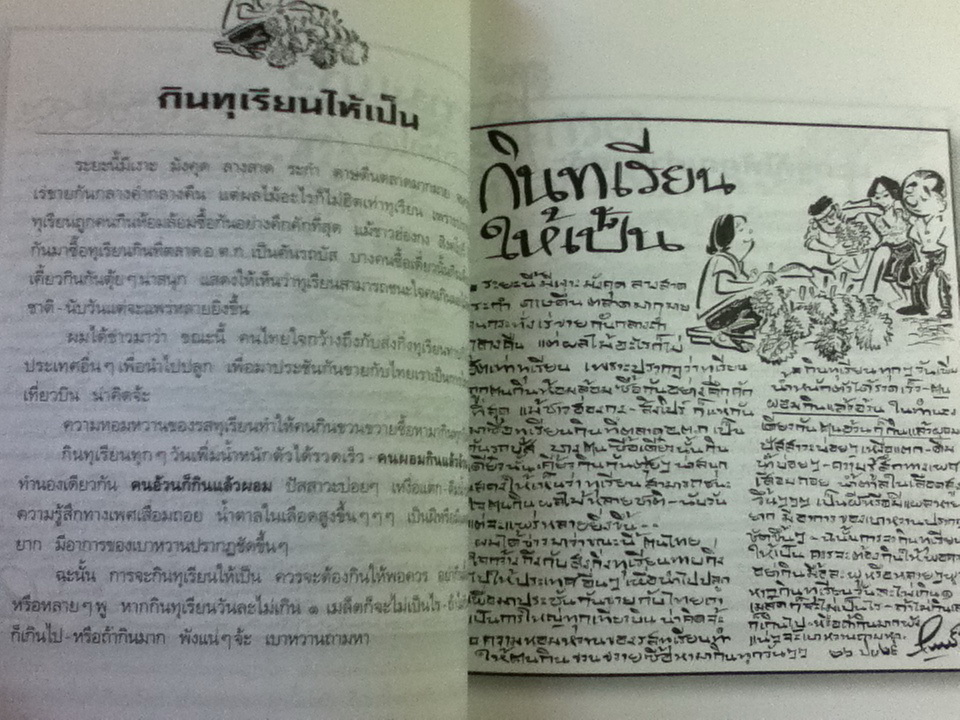 กินทุเรียนให้เป็น
ระยะนี้มีเงาะ มังคุด ลางสาด ระกำ ดาษดื่นตลาดมากมาย
เร่ขายกันกลางค่ำกลางคืน แต่ผลไม้อะไรก็ไม่ฮิตเท่าทุเรียน
ทุเรียนถูกคนกินห้อมล้อมซื้อกันอย่างคึกคักที่สุด แม้ชาวฮ่องกง
กันมาซื้อทุเรียนกินที่ตลาด อ.ต.ก. เป็นคันรถบัส บางคนซื้อเดี๋ยวนั้น
เดี๋ยวกินกันตุ้ยๆ น่าสนุก แสดงให้เห็นว่าทุเรียนสามารถชนะใจคนกิน
ชาติ-นับวันแต่จะแพร่หลายยิ่งขึ้น
ผมได้ข่าวมาว่า ขณะนี้ คนไทยใจกว้างถึงกับส่งกิ่งทุเรียน
ประเทศอื่นๆ เพื่อนำไปปลูก เพื่อมาประชันกันขายกับไทยเราเป็นการ
เที่ยวบิน น่าคิดจ้ะ
ความหอมหวานของรสทุเรียนทำให้คนกินขวนขวายซื้อหามากิน
กินทุเรียนทุกๆ วันเพิ่มน้ำหนักตัวได้รวดเร็ว-คนผอมกินแล้ว
ทำนองเดียวกัน คนอ้วนก็กินแล้วผอม ปัสสาวะบ่อยๆ เหงื่อแตก
ความรู้สึกทางเพศเสื่อมถอย น้ำตาลในเลือดสูงขึ้นๆๆๆ เป็นฝีหรือ
ยาก มีอาการของเบาหวานปรากฏชัดขึ้นๆ
ฉะนั้น การจะกินทุเรียนให้เป็น ควรจะต้องกินให้พอควร
หรือหลายๆ พู หากกินทุเรียนวันละไม่เกิน ๑ เมล็ดก็จะไม่เป็นไร
ก็เกินไป-หรือถ้ากินมาก พังแน่ๆ จ้ะ เบาหวานถามหา
กินทุเรียน
ให้เป็น
ระยะนี้ มีเงาะ มังคุด ลางสาด
ระกำ ดาษดื่น ตลาดมากมาย
จนกระทั่งเร่ขายกันกลางค่ำ
กลางคืน แต่ผลไม้อะไรก็ไม่
ฮิตเท่าทุเรียน เพราะปรากฏว่าทุเรียน
ถูกคนกินห้อมล้อมซื้อกันอย่างคึกคัก
ที่สุด แม้ชาวฮ่องกง-สิงคโปร์ ก็แห่กัน
มาซื้อทุเรียนกินที่ตลาด อ.ต.ก. เป็น
คันรถบัส บางคนซื้อเดี๋ยวนั้นกิน
เดี๋ยวนั้น เคี้ยวกินกันตุ้ยๆ น่าสนุก
แสดงให้เห็นว่าทุเรียนสามารถชนะ
ใจคนกินผลไม้ได้หลายชาติ-นับวัน
แต่จะแพร่หลายยิ่งขึ้น
ผมได้ข่าวมาว่าขณะนี้ คนไทย
ใจกว้างถึงกับส่งกิ่งทุเรียนทาบกิ่ง
ไปให้ประเทศอื่นๆ เพื่อนำไปปลูก
เพื่อมาประชันกันขายกับไทยเรา
เป็นการใหญ่ทุกเที่ยวบิน น่าคิดจ้ะ
ความหอมหวานของรสทุเรียนทำ
ให้คนกินขวนขวายซื้อหามากินทุกวันๆ
กินทุเรียนทุกๆ วันเพิ่ม
น้ำหนักตัวได้รวดเร็ว-คน
ผอมกินแล้วอ้วน ในทำนอง
เดียวกันคนอ้วนก็กินแล้วผอม
ปัสสาวะบ่อยๆ เหงื่อแตก-ดื่ม
น้ำบ่อยๆ-ความรู้สึกทางเพศ
เสื่อมถอย น้ำตาลในเลือดสูง
ขึ้นๆๆๆ เป็นฝีหรือมีแผลหาย
ยาก มีอาการของเบาหวานปรากฏ
ชัดขึ้นๆ-ฉะนั้นการจะกินทุเรียน
ให้เป็น ควรจะต้องกินให้พอควร
อย่ากินมื้อละพูหรือหลายๆ พู
หากกินทุเรียนวันละไม่เกิน ๑
เมล็ดก็จะไม่เป็นไร-ถ้าไม่กินเลย
ก็เกินไป-หรือถ้ากินมากพัง
แน่ๆ จ้ะเบาหวานถามหา